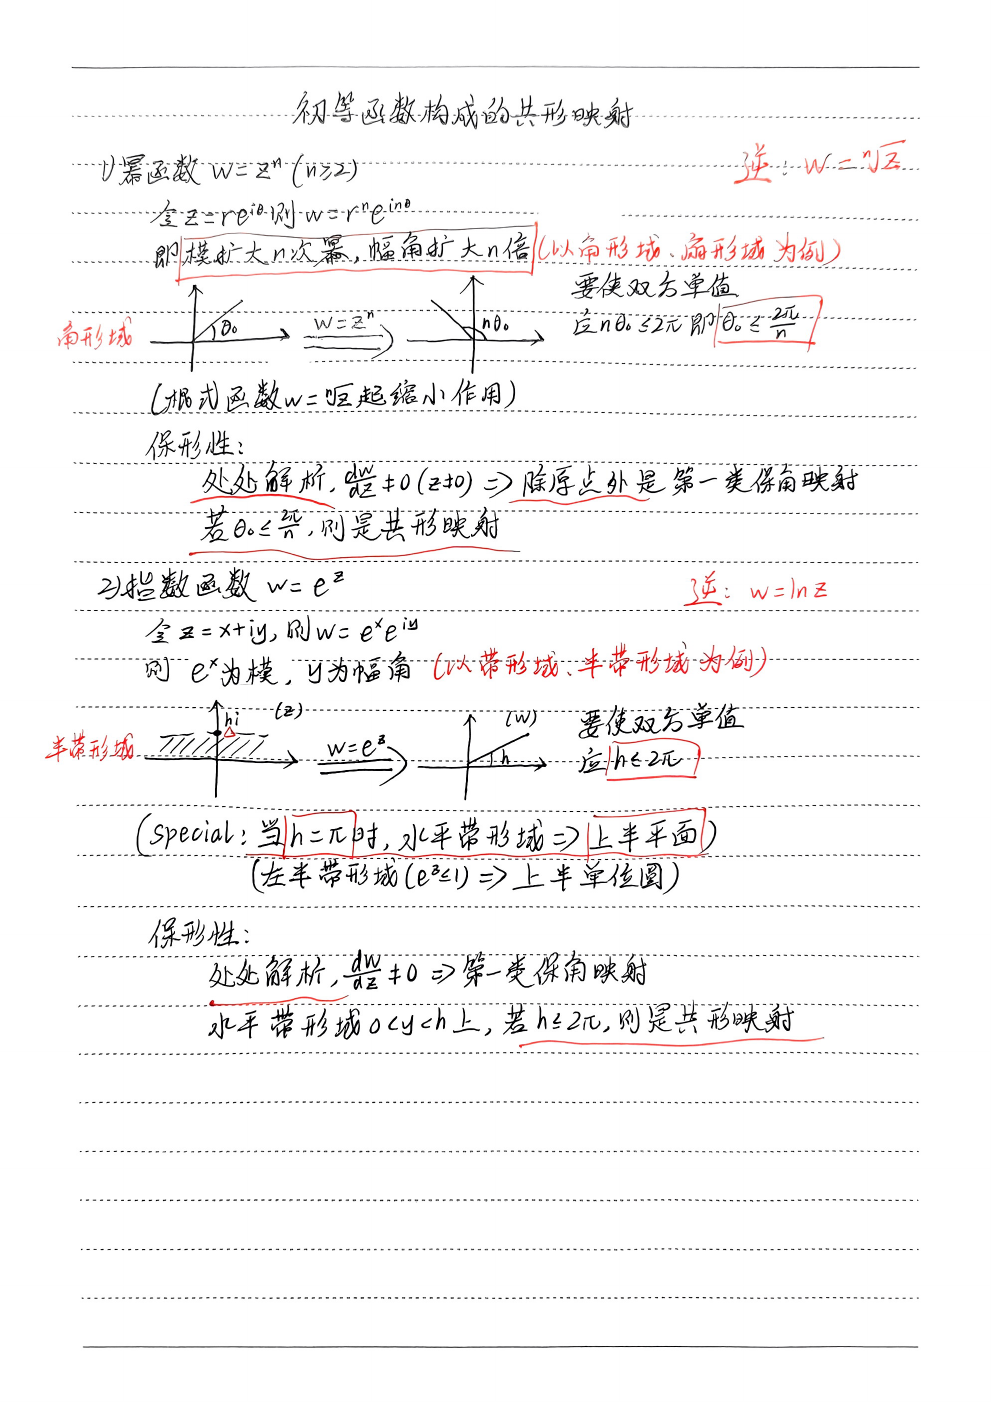 初等函数构成的共形映射
1) 幂函数 w=zⁿ (n≥2)
逆: w=ⁿ√z
令 z=re^{iθ} 则 w=rⁿe^{inθ}
即模扩大n次幂,幅角扩大n倍 (以角形域、扇形域为例)
要使双方单值
应 nθ₀≤2π 即 θ₀≤2π/n
角形域
θ₀
w=zⁿ
nθ₀
(根式函数w=ⁿ√z起缩小作用)
保形性:
处处解析, dw/dz≠0 (z≠0) => 除原点外是第一类保角映射
若θ₀≤2π/n, 则是共形映射
2) 指数函数 w=e^z
逆: w=lnz
令 z=x+iy, 则 w=e^x e^{iy}
则 e^x为模, y为幅角 (以带形域、半带形域为例)
要使双方单值
应 h≤2π
半带形域
hi
(z)
w=e^z
(w)
h
(special: 当h=π时, 水平带形域 => 上半平面)
(左半带形域(e^z≤1) => 上半单位圆)
保形性:
处处解析, dw/dz≠0 => 第一类保角映射
水平带形域 0<y<h上, 若h≤2π, 则是共形映射